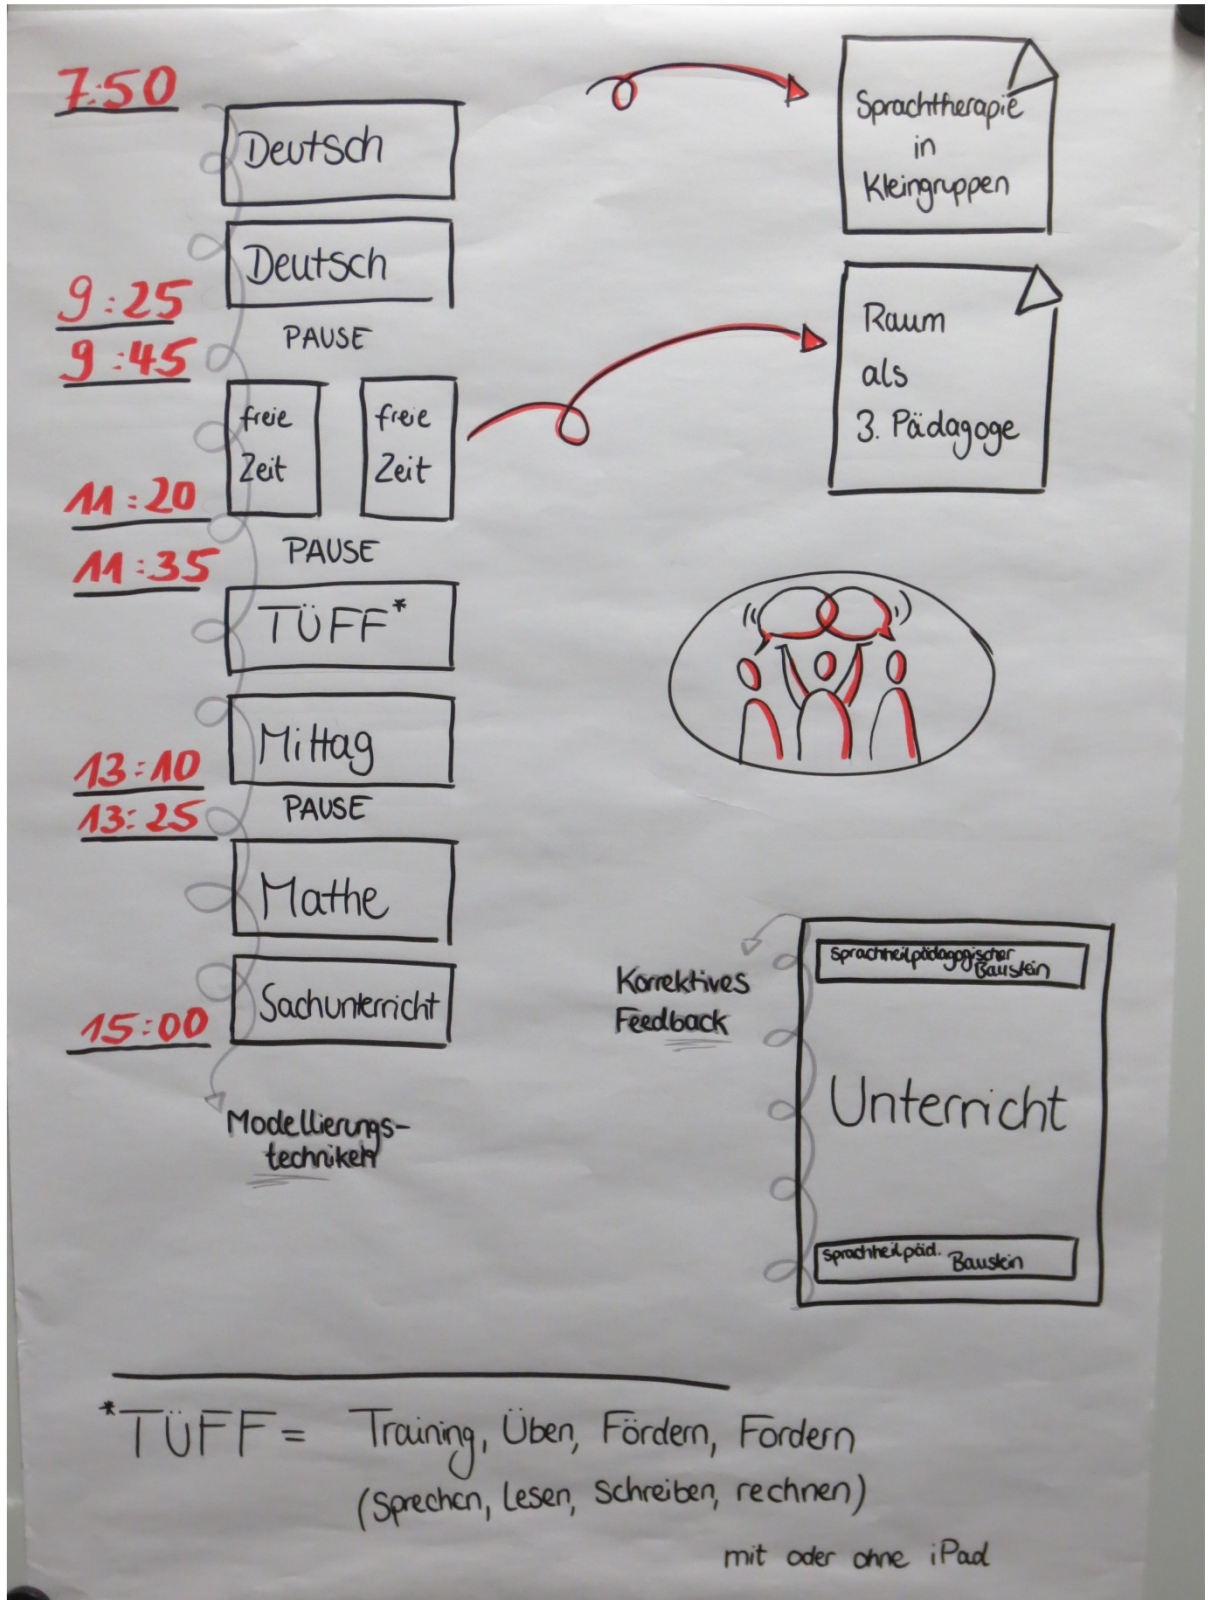 7:50
Deutsch
Deutsch
9:25
PAUSE
9:45
freie
Zeit
freie
Zeit
11:20
PAUSE
11:35
TÜFF*
Mittag
13:10
PAUSE
13:25
Mathe
Sachunterricht
15:00
Modellierungs-
techniken
Sprachtherapie
in
Kleingruppen
Raum
als
3. Pädagoge
Korrektives
Feedback
Sprachheilpädagogischer
Baustein
Unterricht
Sprachheilpäd.
Baustein
*TÜFF = Training, Üben, Fördern, Fordern
(Sprechen, Lesen, Schreiben, rechnen)
mit oder ohne iPad